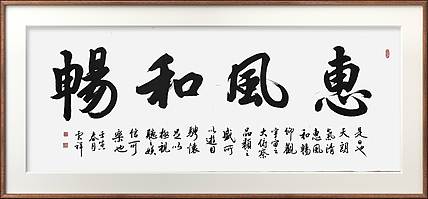 惠風和暢
是日也
天朗氣清
惠風和暢
仰觀
宇宙之
大俯察
品類之
盛可
以遊目
騁懷
足以
極視
聽之娛
信可
樂也
壬寅
春月
雲祥